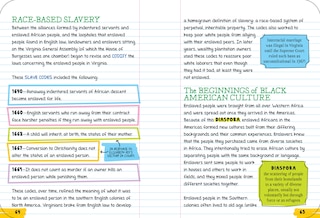 RACE-BASED SLAVERY
Between the alliances formed by indentured servants and
enslaved African people, and the loopholes that enslaved
people found in English law, landowners and enslavers sitting
on the Virginia General Assembly (of which the House of
Burgesses was one chamber) began to revise and CODIFY the
laws concerning the enslaved people in Virginia.
These SLAVE CODES included the following:
1640—Runaway indentured servants of African descent
became enslaved for life.
1660—English servants who ran away from their contract
face harsher penalties if they ran away with enslaved people.
1662—A child will inherit, at birth, the status of their mother.
1667—Conversion to Christianity does not
alter the status of an enslaved person.
1669—It does not count as murder if an owner kills an
enslaved person while punishing them.
These codes, over time, refined the meaning of what it was
to be an enslaved person in the southern English colonies of
North America. Virginians broke from English law to develop
64
a homegrown definition of slavery: a race-based system of
perpetual, inheritable property. The codes also worked to
keep poor white people from allying
with their enslaved people. In later
years, wealthy plantation owners
used these codes to reassure poor
white laborers that even though
they had it bad, at least they
were not enslaved.
Interracial marriage
was illegal in Virginia
until the Supreme Court
ruled such laws as
unconstitutional in 1967.
THE BEGINNINGS OF BLACK
AMERICAN CULTURE
Enslaved people were brought from all over Western Africa
and were spread out once they arrived in the Americas.
Because of the DIASPORA, enslaved Africans in the
Americas formed new cultures built from their differing
backgrounds and their common experiences. Enslavers knew
that the people they purchased came from diverse societies
in Africa. They intentionally tried to erase African culture by
separating people with the same background or language.
Enslavers sent some people to work
in houses and others to work in
fields, and they mixed people from
different societies together.
Enslaved people in the Southern
colonies often lived to old age (unlike
DIASPORA
65